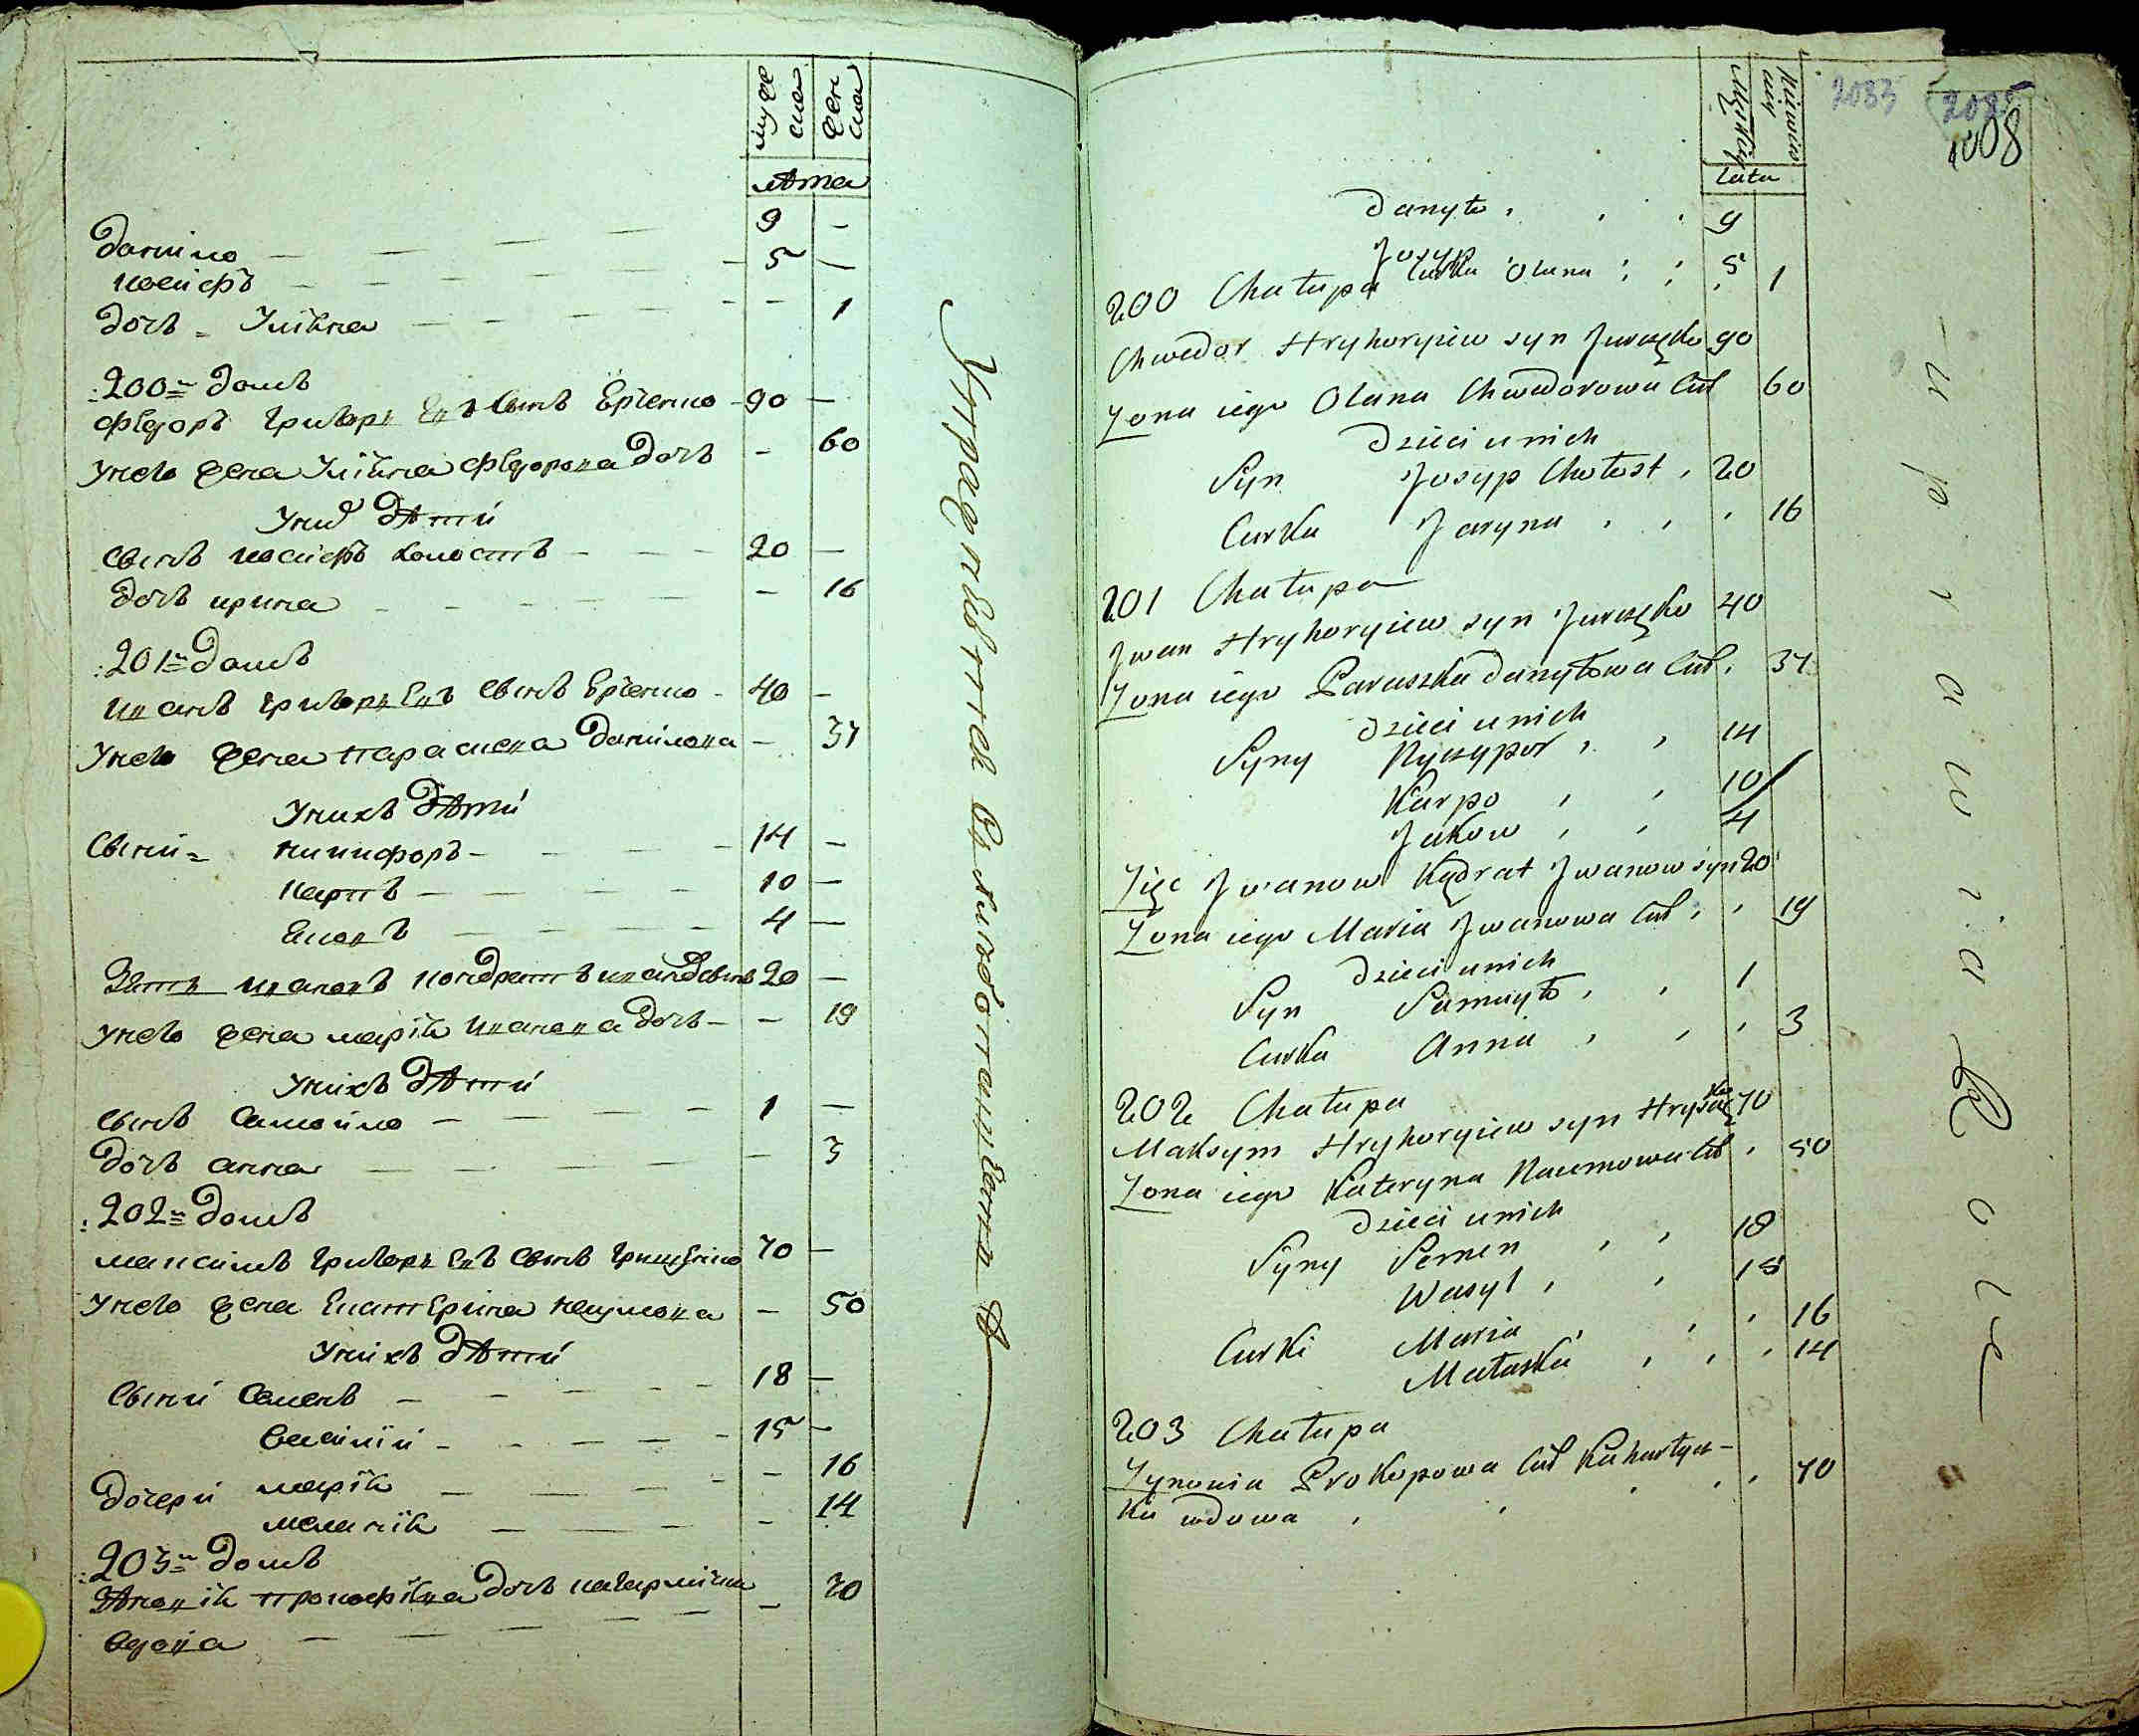 муже
ска
жен
ска
лѣта
Данило — — — — 9 —
иосифъ — — — — 5 —
дочь = Улiяна — — — — 1
200й домъ
Федоръ григорьевъ сынъ Ерченко - 90 —
Унего жена Улiяна федорова дочь - 60
Уних дѣти
сынъ иосифъ холостъ — — — 20 —
дочь ирина — — — — — 16
201й домъ
иванъ григорьевъ сынъ Ерченко - 40 —
Унего жена параскева данилова — 37
Унихъ дѣти
сыни = никифоръ — — — 14 —
карпъ — — — — 10 —
Яковъ — — — — 4 —
Зять ивановъ кондратъ ивановъ сынъ 20 —
Унего жена марiя иванова дочь — — 19
Унихъ дѣти
сынъ самойло — — — — 1 —
дочь анна — — — — — 3
202й домъ
максимъ григорьевъ сынъ грищенко 70 —
Унего жена Екатерина наумова — 50
Унихъ дѣти
сыни семенъ — — — — 18 —
василiй — — — — 15 —
дочери марiя — — — — 16
меланiя — — — — 14
203й домъ
Зѣновiя прокофiева дочь
вдова — — — — — 70
męzkiy
lata
2033
2085
1008
Danyło , , , 9
Josyp 5
Curka Olana ; ; , 1
200 Chałupa
Chwedor Hryhoryiew syn Jurczęko 90
Zona iego Olana Chwedorowa Cur 60
Dzieci u nich
Syn Josyp Chołost , 20
Curka Jaryna , , , 16
201 Chałupa
Jwan Hryhoryiew syn Jurczęko 40
Zona iego Paraszka Danyłowa Cur , 37
Dzieci u nich
Syny Nyczypor , , 14
Karpo , , 10
Jakow , , 4
Zięc Jwanow Kędrat Jwanow syn 20
Zona iego Maria Jwanowa Cur , , 19
Dzieci u nich
Syn Samuyło , , 1
Curka Anna , , , 3
202 Chałupa
Maksym Hryhoryiew syn 70
Zona iego Kateryna Naumowa Cur , 50
Dzieci u nich
Syny Semen , , 18
Wasyl , , 15
Curki Maria , , , 16
Małaszka , , , 14
203 Chałupa
Zynowia Prokopowa Cur Kuharłyc-
ka wdowa , , , , , 70
-u p r a w i a R o l e